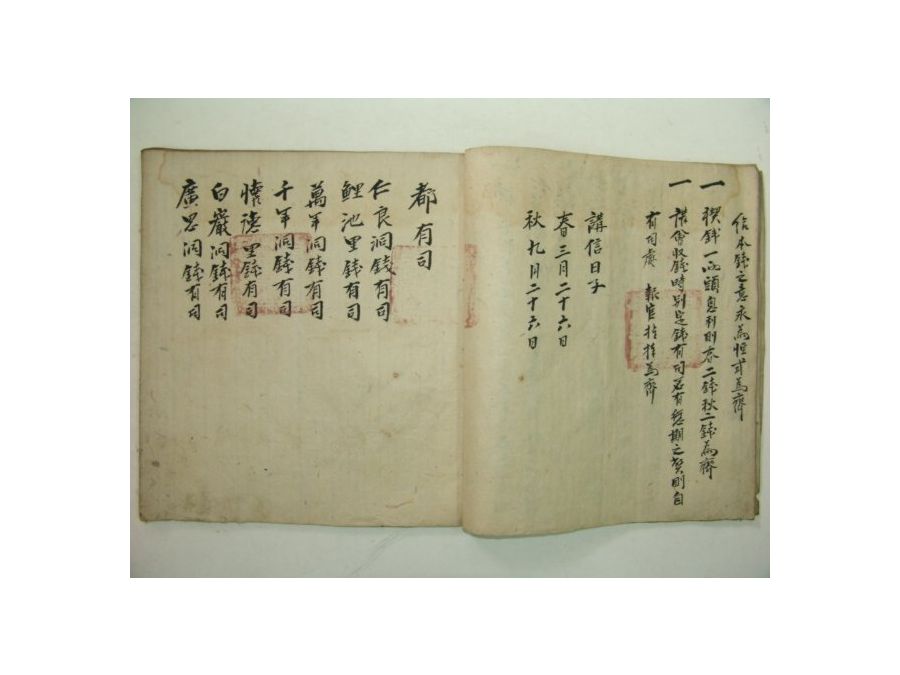 本錢之意永爲恒式爲齊
一 稧錢一兩頭息利則春二錢秋二錢爲齊
一 講會收錢時別定錢有司若有愆期之弊則自
有司處 報官 爲齊
講信日子
春三月二十六日
秋九月二十六日
都有司
仁良洞錢有司
鯉池里錢有司
萬年洞錢有司
千年洞錢有司
懷德里錢有司
白巖洞錢有司
廣思洞錢有司